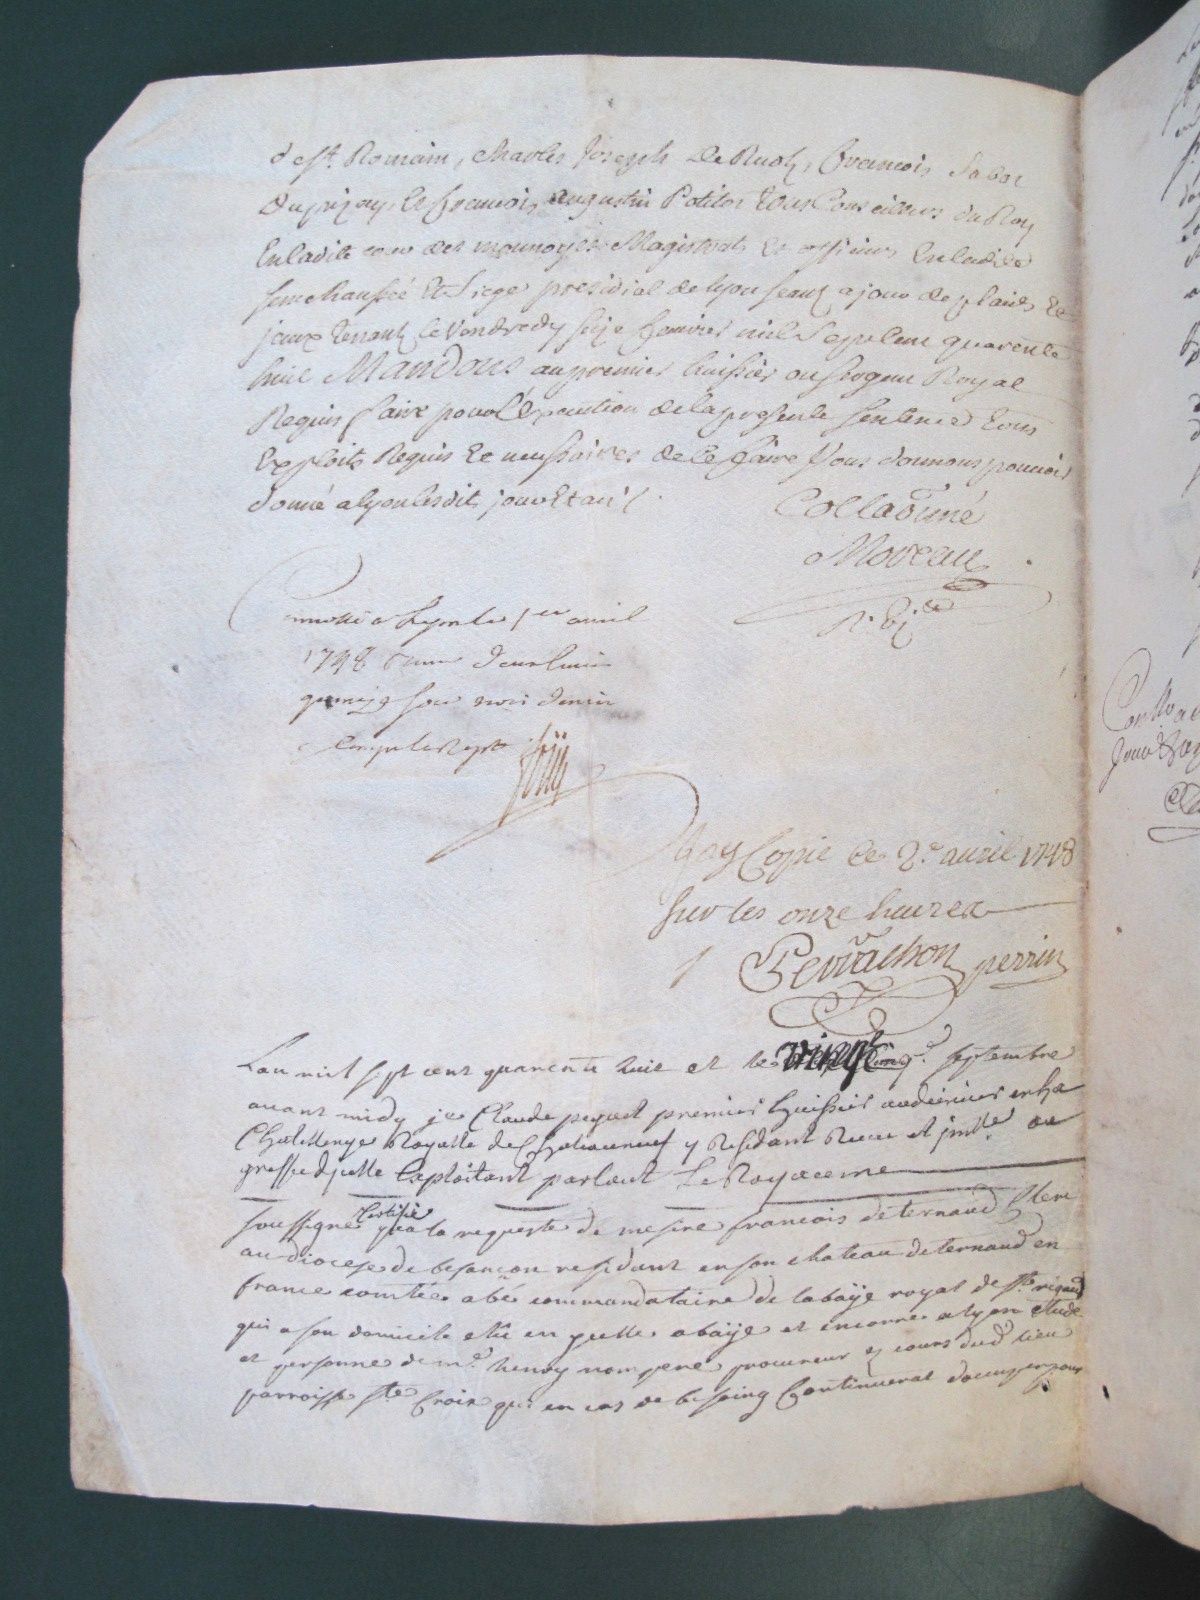 de St. Romain, Charles Joseph De Ruoly, Francois Sabot
Dupizay, et francois augustin Potitot tous Conseillers du Roy
En ladite cour des monnoyes Magistrats et officiers En ladite
senechaussée Et Siege presidial de lyon seant a jour de plaids Et
jceux tenant le Vendredy seize fevrier mil Sept cent quarente
huit Mandons au premier huissier ou sergent Royal
Requis faire pour l'Execution de la presente sentence tous
Exploits Requis Et necessaires de ce faire Vous donnons pouvoir
donné a lyon lesdits jour Et an
Collationné
Moreau
a Lyon le 1er avril
1748
Jay Copie le 2e. avril 1748
sur les onze heures
Perrachon perrin
Lan mil sept cent quarente huit et le vingt cinqe. septembre
avant midy je Claude peguet premier huissier audiencier en la
Chatellenye Royalle de Chateauneuf y Residant Receu et jmlle. au
greffe dycelle Exploitant par tout Le Royaceme
soussigné Certifie qua la requeste de messire francois de ternaud Clerc
au diocese de besançon residant en son chateau de ternaud en
france comtée abé commandataire de labaÿe royal de st. rigaud
qui a son domicile elu en ycelle abaÿe et encorre a lyon etude
et personne de me. henry nompere procureur es cours dud. lieu
parroisse ste. Croix qui en cas de besoing Continuerat doccuper pour